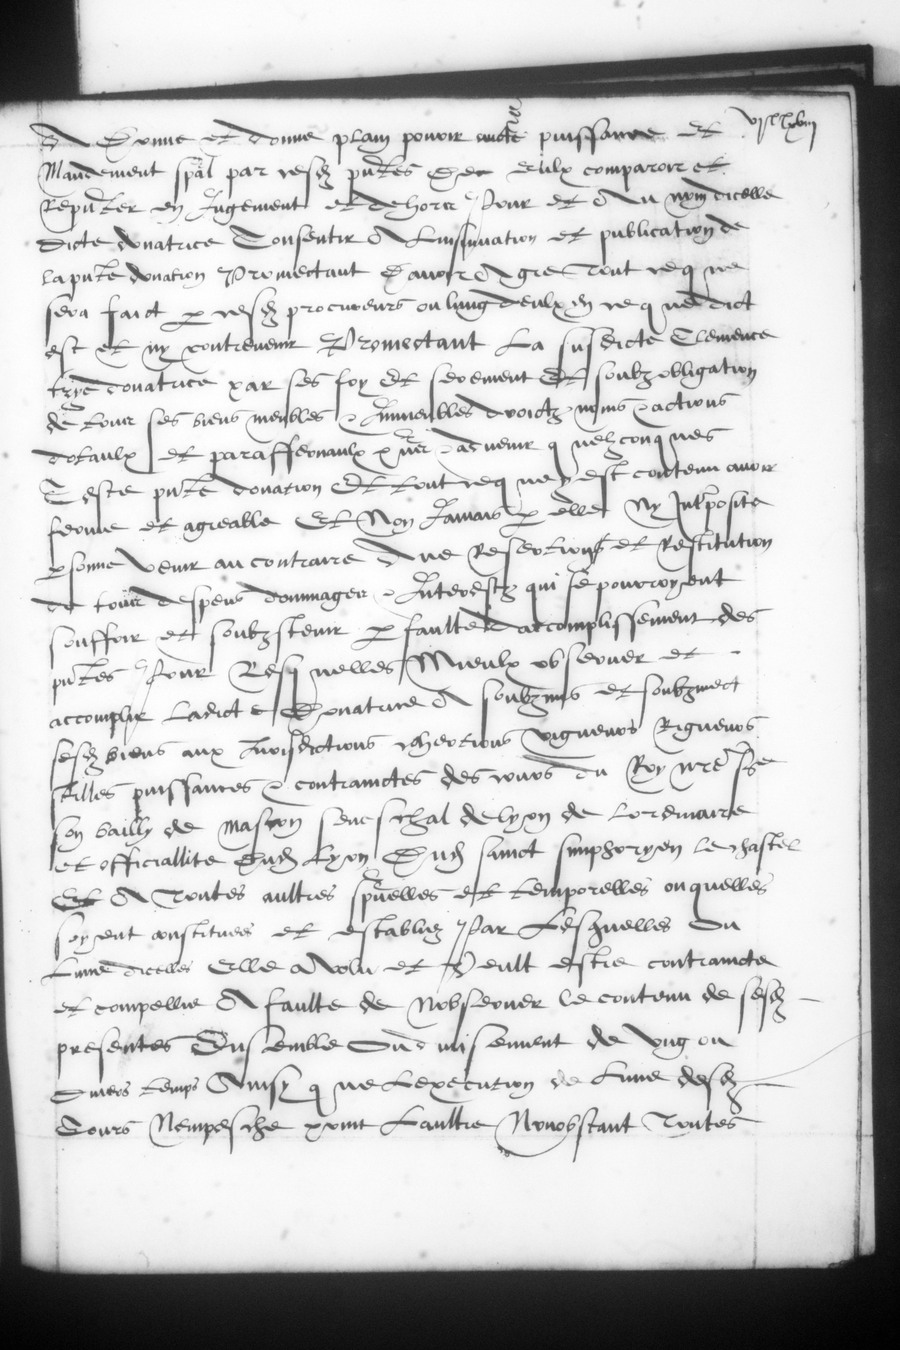 A donne et donne plain povoir aucte puissance et
Mandement spal par cesd putes de eulx comparoir et
Reputer en Jugement et dehors Pour et Au nom dicelle
dicte donatrice Consentir A Linsinuation et publication de
la pute donation Promectant davoir A gre Tout ce que
sera faict p cesd procureurs ou lung deulx en ce que dict
est et ny contrevenir Promectant La susdicte Clemence
donatrice par ses foy Et serement Et soubz obligation
de tous ses biens meubles & Immeubles droictz noms & actions
dotaulx et paraffernaulx pns & advenir quelzconques
Ceste pute donation Et tout ce que y est contenu avoir
ferme et agreable Et Non Jamais p elle Ny Interposite
psonne venir au contraire Ains Reffection et Restitution
de tous despens dommages & Interestz qui se pourroyent
souffrir et soubzstenir p faulte daccomplissement des
putes Pour Lesquelles Mieulx observer et
accomplir Ladicte Donatrice A soubzmis et soubzmect
sesd biens aux Jurisdictions cohertions vigueurs Rigueurs
stilles puissances & contrainctes des cours du Roy nre sire
son bailly de mascon seneschal de lyon de Lordinaire
et officiallite dud Lyon Dud sainct simphoryen le chastel
Et A Toutes aultres spuelles et temporelles ou quelles
soyent constituees et establies Par Lesquelles Ou
Lune dicelles Elle A volu et Veult estre contraincte
et compellie A faulte de Nobserver le contenu de sesd
presentes Ensemble Ou diviseement de Ung ou
divers temps Ainsy que Lexecution de Lune desd
Cours Nempesche point Laultre Nonobstant Toutes